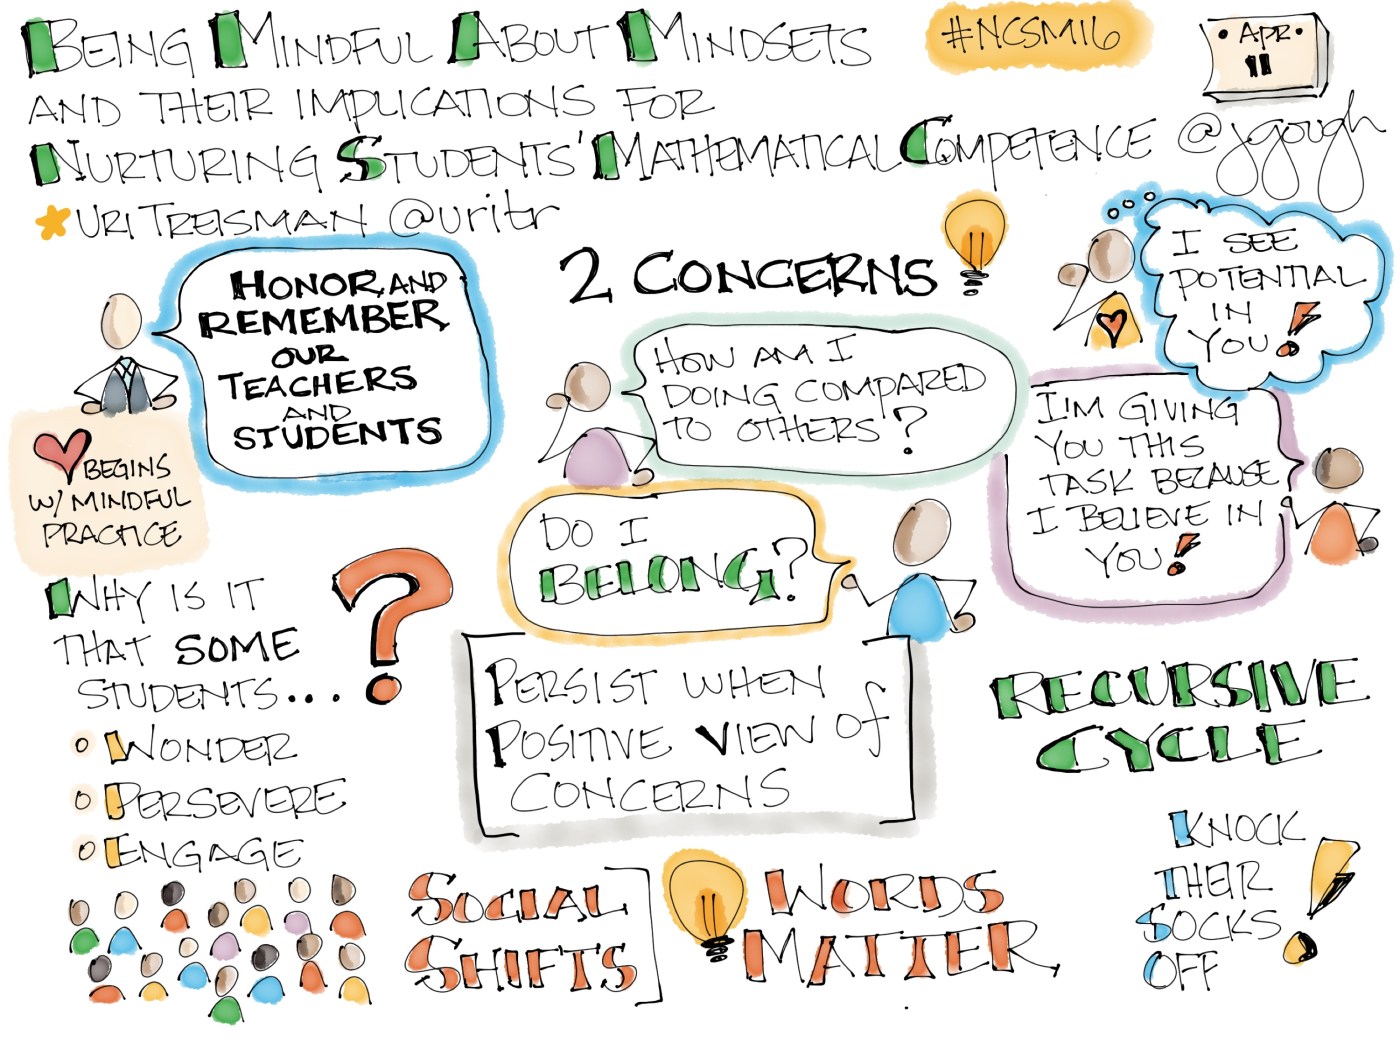 BEING MINDFUL ABOUT MINDSETS
AND THEIR IMPLICATIONS FOR
NURTURING STUDENTS' MATHEMATICAL COMPETENCE
URI TREISMAN @uritr
#NCSM16
APR
11
@jgough
HONOR AND
REMEMBER
OUR
TEACHERS
AND
STUDENTS
BEGINS
W/ MINDFUL
PRACTICE
2 CONCERNS
HOW AM I
DOING COMPARED
TO OTHERS?
DO I
BELONG?
I SEE
POTENTIAL
IN
YOU!
I'M GIVING
YOU THIS
TASK BECAUSE
I BELIEVE IN
YOU!
WHY IS IT
THAT SOME
STUDENTS...?
WONDER
PERSEVERE
ENGAGE
PERSIST WHEN
POSITIVE VIEW of
CONCERNS
RECURSIVE
CYCLE
SOCIAL
SHIFTS
WORDS
MATTER
KNOCK
THEIR
SOCKS
OFF!